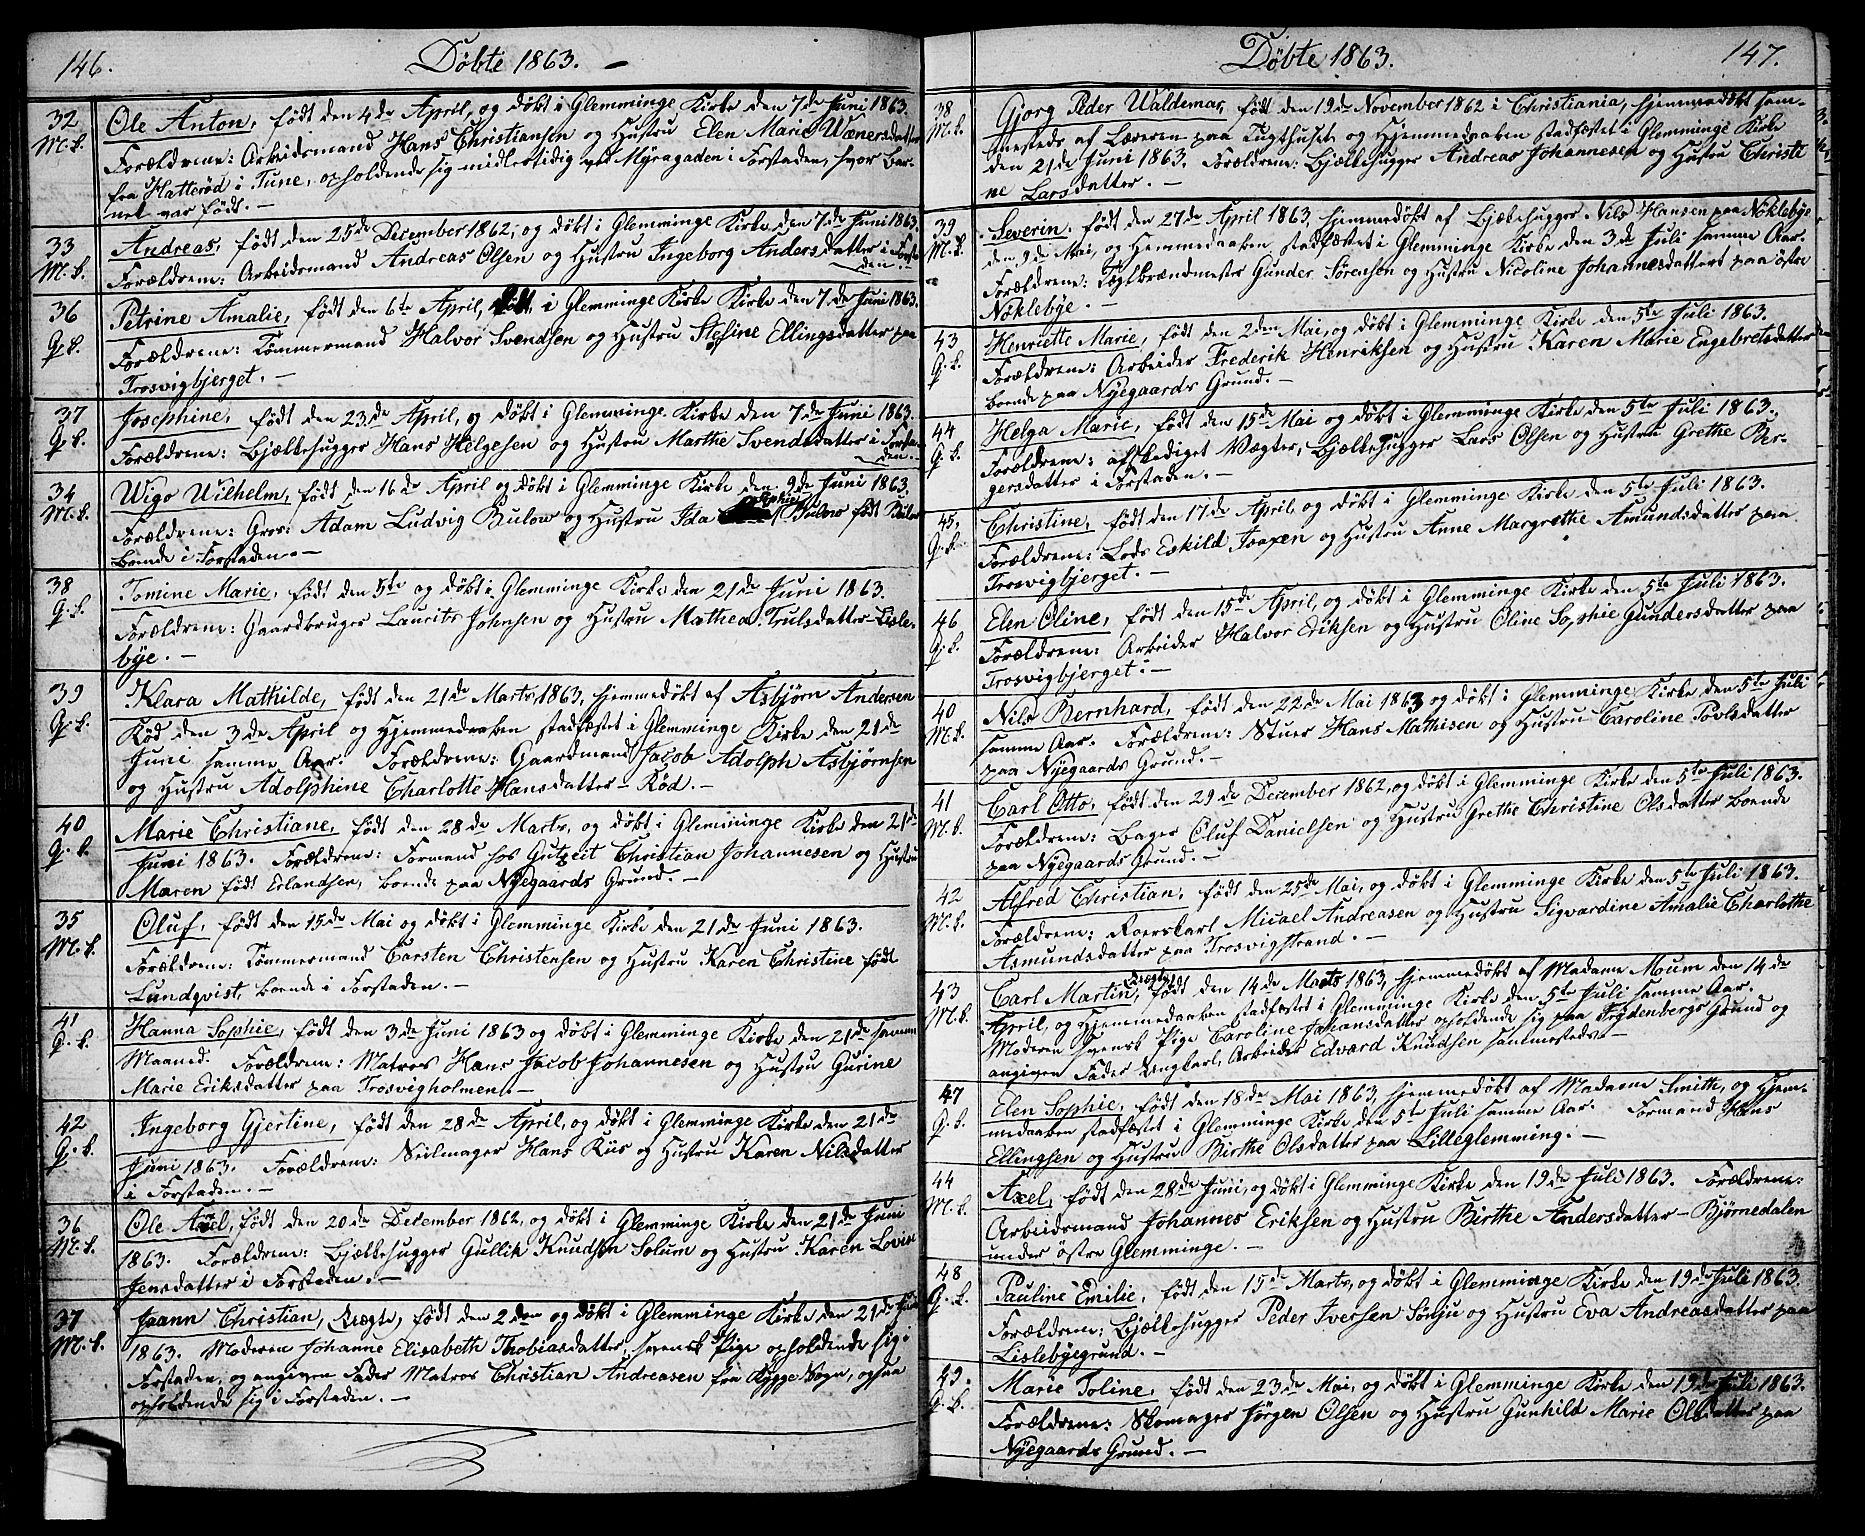 146.
Döbte 1863. —
32
M.k.
Ole Anton, født den 4de April, og døbt i Glemminge Kirke den 7de Juni 1863.
Forældrene: Arbeidsmand Hans Christiansen og Hustru Elen Marie Wænersdatter
fra Hatteröd i Tune, opholdende sig midlertidig ved Myragaden i Forstaden, hvor Bar-
net var født. —
33
M.k.
Andreas, født den 25de December 1862, og døbt i Glemminge Kirke den 7de Juni 1863.
Forældrene: Arbeidsmand Andreas Olsen og Hustru Ingeborg Andersdatter i Forsta-
den. —
36
P.k.
Petrine Amalie, født den 6te April, døbt i Glemminge Kirke Kirke den 7de Juni 1863.
Forældrene: Tømmermand Halvor Svendsen og Hustru Stefine Ellingsdatter paa
Trosvigbjerget. —
37
P.k.
Josephine, født den 23de April, og døbt i Glemminge Kirke den 7de Juni 1863.
Forældrene: Bjælkehugger Hans Helgesen og Hustru Marthe Svendsdatter i Forsta-
den. —
34
M.k.
Wigo Wilhelm, født den 16de April og døbt i Glemminge Kirke den 9de Juni 1863.
Forældrene: Gros: Adam Ludvig Bulow og Hustru Ida Sophie Bulow født Bülow
boende i Forstaden. —
38
P.k.
Tomine Marie, født den 5te og døbt i Glemminge Kirke den 21de Juni 1863.
Forældrene: Gaardbruger Laurits Johnsen og Hustru Mathea Trulsdatter - Lisle-
bye. —
39
P.k.
Klara Mathilde, født den 21de Marts 1863, hjemmedøbt af Asbjörn Andersen
Röd den 3de April og Hjemmedaaben stadfæstet i Glemminge Kirke den 21de
Juni samme Aar. Forældrene: Gaardmand Jacob Adolph Asbjørnsen
og Hustru Adolphine Charlotte Hansdatter - Röd. —
40
P.k.
Marie Christiane, født den 28de Marts, og døbt i Glemminge Kirke den 21de
Juni 1863. Forældrene: Formand hos Gutzeit Christian Johannesen og Hustru
Maren født Erlandsen, boende paa Nyegaards Grund. —
35
M.k.
Oluf, født den 15de Mai og døbt i Glemminge Kirke den 21de Juni 1863.
Forældrene: Tømmermand Carsten Christensen og Hustru Karen Christine født
Lundqvist, boende i Forstaden. —
41
P.k.
Hanna Sophie, født den 3de Juni 1863 og døbt i Glemminge Kirke den 21de samme
Maaned. Forældrene: Matros Hans Jacob Johannesen og Hustru Gurine
Marie Eriksdatter paa Trosvigholmen. —
42
P.k.
Ingeborg Gjertine, født den 28de April, og døbt i Glemminge Kirke den 21de
Juni 1863. Forældrene: Seilmager Hans Riis og Hustru Karen Nilsdatter
i Forstaden. —
36
M.k.
Ole Axel, født den 20de December 1862, og døbt i Glemminge Kirke den 21de Juni
1863. Forældrene: Bjælkehugger Gullik Knudsen Solum og Hustru Karen Lovise
Jensdatter i Forstaden. —
37
M.k.
Joann Christian, Uægte, født den 2den og døbt i Glemminge Kirke den 21de Juni
1863. Moderen Johanne Elisabeth Thobiasdatter, svensk Pige opholdende sig i
Forstaden, og angiven Fader Matros Christian Andreasen fra Rygge Sogn, ogsaa
opholdende sig i Forstaden. —
Döbte 1863.
147.
38
M.k.
Gjorg Peder Waldemar, født den 19de November 1862 i Christiania, hjemmedøbt sam-
mesteds af Læreren paa Tugthuset og Hjemmedaaben stadfæstet i Glemminge Kirke
den 21de Juni 1863. Forældrene: Bjælkehugger Andreas Johannesen og Hustru Christi-
ne Larsdatter. —
39
M.k.
Severin, født den 27de April 1863, hjemmedøbt af Bjælkehugger Nils Hansen paa Nöklebye
den 9de Mai, og Hjemmedaaben stadfæstet i Glemminge Kirke den 3de Juli samme Aar.
Forældrene: Teglbrændmester Gunder Sørensen og Hustru Nicoline Johannesdatter paa østre
Nöklebye. —
43
P.k.
Henriette Marie, født den 2den Mai, og døbt i Glemminge Kirke den 5te Juli 1863.
Forældrene: Arbeider Frederik Henriksen og Hustru Karen Marie Engebretsdatter
boende paa Nyegaards Grund. —
44
P.k.
Helga Marie, født den 15de Mai og døbt i Glemminge Kirke den 5te Juli 1863.
Forældrene: afskediget Vægter, Bjælkehugger Lars Olsen og Hustru Grethe Bør-
gersdatter i Forstaden. —
45.
P.k.
Christine, født den 17de April og døbt i Glemminge Kirke den 5te Juli 1863.
Forældrene: Lods Eskild Isaksen og Hustru Anne Margrethe Amundsdatter paa
Trosvigbjerget. —
46
P.k.
Elen Oline, født den 15de April, og døbt i Glemminge Kirke den 5te Juli 1863.
Forældrene: Arbeider Halvor Eriksen og Hustru Oline Sophie Gundersdatter paa
Trosvigbjerget. —
40
M.k.
Nils Bernhard, født den 22de Mai 1863 og døbt i Glemminge Kirke den 5te Juli
samme Aar. Forældrene: Stuer Hans Mathisen og Hustru Caroline Povlsdatter
paa Nyegaards Grund. —
41
M.k.
Carl Otto, født den 29de December 1862, og døbt i Glemminge Kirke den 5te Juli 1863.
Forældrene: Bager Oluf Danielsen og Hustru Grethe Christine Olsdatter boende
paa Nyegaards Grund. —
42
M.k.
Alfred Christian, født den 25de Mai, og døbt i Glemminge Kirke den 5te Juli 1863.
Forældrene: Roerskarl Micael Andreasen og Hustru Sigvardine Amalie Charlotte
Asmundsdatter paa Trosvigstrand. —
43
M.k.
Carl Martin, Uægte, født den 14de Marts 1863, hjemmedøbt af Madame Moum den 14de
April, og Hjemmedaaben stadfæstet i Glemminge Kirke den 5te Juli samme Aar.
Moderen svensk Pige Caroline Johansdatter opholdende sig paa Frydenbergs Grund og
angiven Fader Ungkarl, Arbeider Edvard Knudsen sammesteds. —
47
P.k.
Elen Sophie, født den 18de Mai 1863, hjemmedøbt af Madame Smith, og Hjem-
medaaben stadfæstet i Glemminge Kirke den 5te Juli samme Aar. Formand Hans
Ellingsen og Hustru Birthe Olsdatter paa Lilleglemming. —
44
M.k.
Axel, født den 28de Juni, og døbt i Glemminge Kirke den 19de Juli 1863. Forældrene:
Arbeidsmand Johannes Eriksen og Hustru Birthe Andersdatter - Bjørnedalen
under østre Glemminge. —
48
P.k.
Pauline Emilie, født den 15de Marts, og døbt i Glemminge Kirke den 19de Juli 1863.
Forældrene: Bjælkehugger Peder Iversen Sönju og Hustru Eva Andreasdatter paa
Lislebyegrund. —
49.
P.k.
Marie Toline, født den 23de Mai, og døbt i Glemminge Kirke den 19de Juli 1863.
Forældrene: Skomager Jörgen Olsen og Hustru Gunhild Marie Olsdatter paa
Nyegaards Grund. —